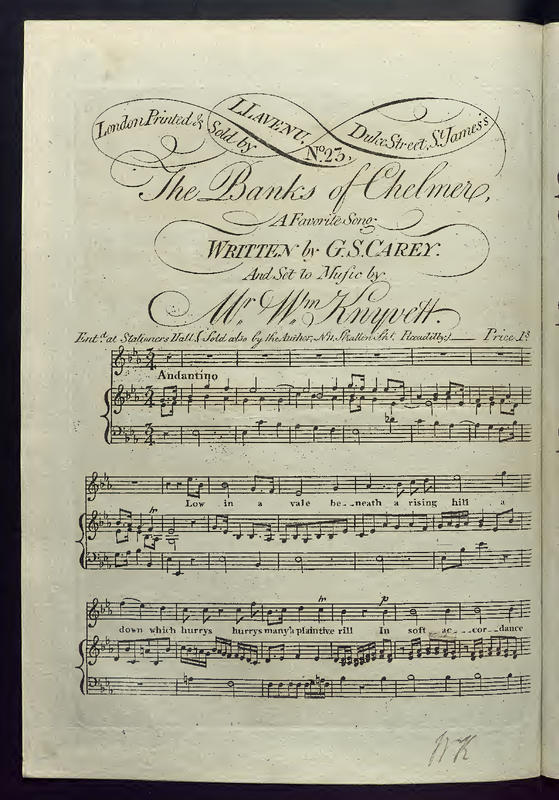 London Printed & Sold by L. LAVENU, No. 23, Duke Street St. James's
The Banks of Chelmer,
A Favorite Song
WRITTEN by G.S. CAREY.
And Set to Music by
Mr. Wm. Knyvett.
Entd. at Stationers Hall & Sold also by the Author, No. 11, Stratton Strt. Piccadilly. Price 1s
Andantino
tr
Low in a vale be--neath a rising hill a
tr p
down which hurrys hurrys many'a plaintive rill In soft ac---cor--dance
WK